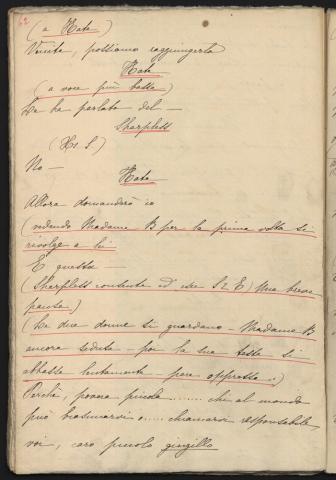 62
(a Kate)
Venite, possiamo raggiungerla
Kate
(a voce più bassa)
Le ha parlato del —
Sharpless
(No —
Kate
Allora domanderò io
(vedendo Madame B per la prima volta si
rivolge a lei
E questa —
(Sharpless consente ed esce S 2 E) Una breve
pausa.)
(Le due donne si guardano — Madame B
ancora seduta — poi la sua testa si
abbassa lentamente — pare oppressa..)
Perchè, povera piccola ...... chi al mondo
può biasimarvi o ..... chiamarvi responsabile,
voi, caro piccolo gingillo